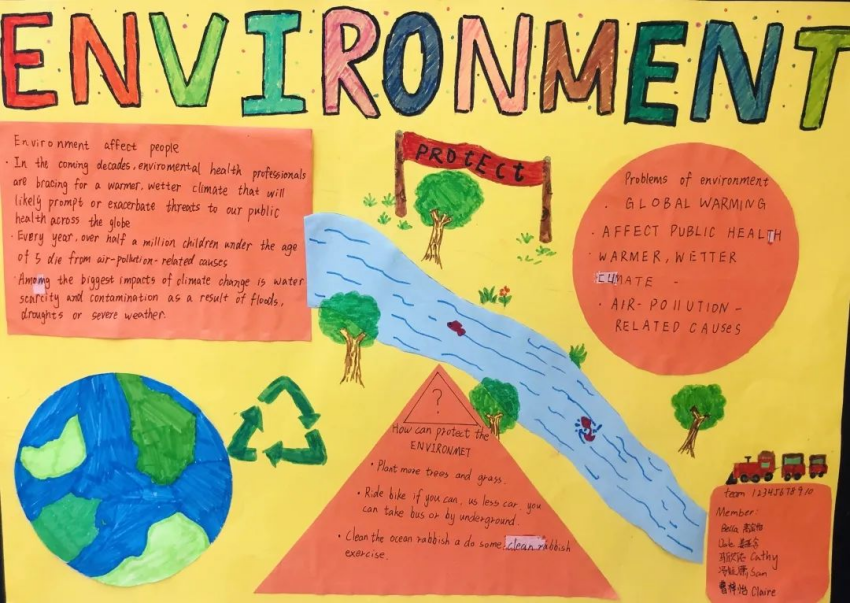 ENVIRONMENT
Environment affect people
· In the coming decades, enviromental health professionals
are bracing for a warmer, wetter climate that will
likely prompt or exacerbate threats to our public
health across the globe
· Every year, over half a million children under the age
of 5 die from air-pollution-related causes
· Among the biggest impacts of climate change is water
scarcity and contamination as a result of floods,
droughts or severe weather.
PROTECT
Problems of environment
· GLOBAL WARMING
· AFFECT PUBLIC HEALTH
· WARMER, WETTER
CLIMATE
· AIR-POllUTION-
RELATED CAUSES
?
How can protect the
ENVIRONMET
· Plant more trees and grass.
· Ride bike if you can, us less car, you
can take bus or by underground.
· Clean the ocean rabbish a do some clean rabbish
exercise.
team 12345678910
Member:
Bella
Cathy
San
曹梓怡 Claire